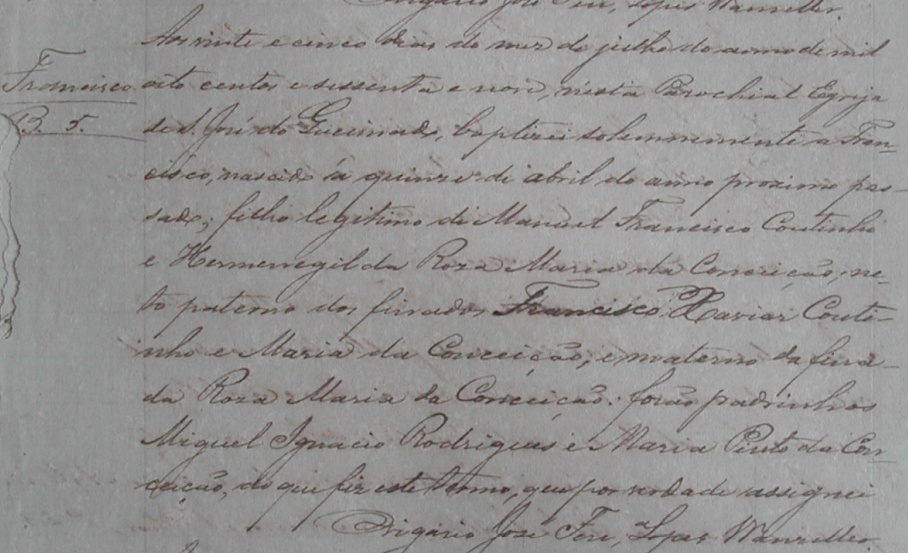 Vigario José Fere, Lopes Wanzeller.
Aos vinte e cinco dias do mez de julho do anno de mil
Francisco
oito centos e sessenta e nove, nésta Parochial Egreja
B. 5.
de S. José do Queimado, baptizei solemnemente a Fran-
cisco, nascido á quinze de abril do anno proximo pas-
sado; filho legitimo de Manuel Francisco Coutinho
e Hermenegilda Roza Maria da Conceição; ne-
to paterno dos finados Francisco Xavier Couti-
nho e Maria da Conceição; e materno da fina-
da Roza Maria da Conceição: forão padrinhos
Miguel Ignacio Rodrigues e Maria Pinto da Con-
ceição, do que fiz este termo, que por verdade assignei
Vigario José Fere, Lopes Wanzeller.